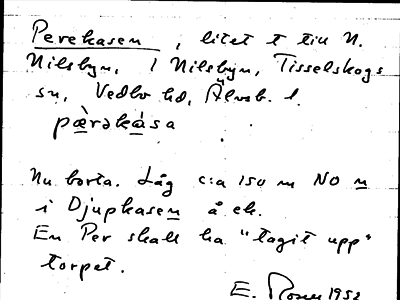 Perekasen, litet t till N.
Nilsbyn, 1 Nilsbyn, Tisselskogs
sn, Vedbo hd, Älvsb. l.
pæ̀rəkása
Nu borta. Låg c:a 150 m NO n
i Djupkasen å ek.
En Per skall ha "tagit upp"
torpet.
E. Rosen 1952